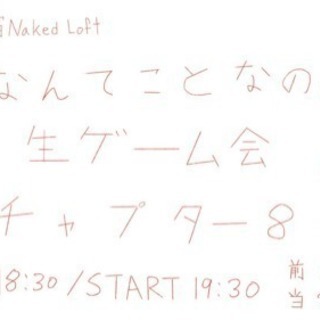 Naked Loft
なんてことなの
生ゲーム会
チャプター8
18:30/START 19:30
前
当